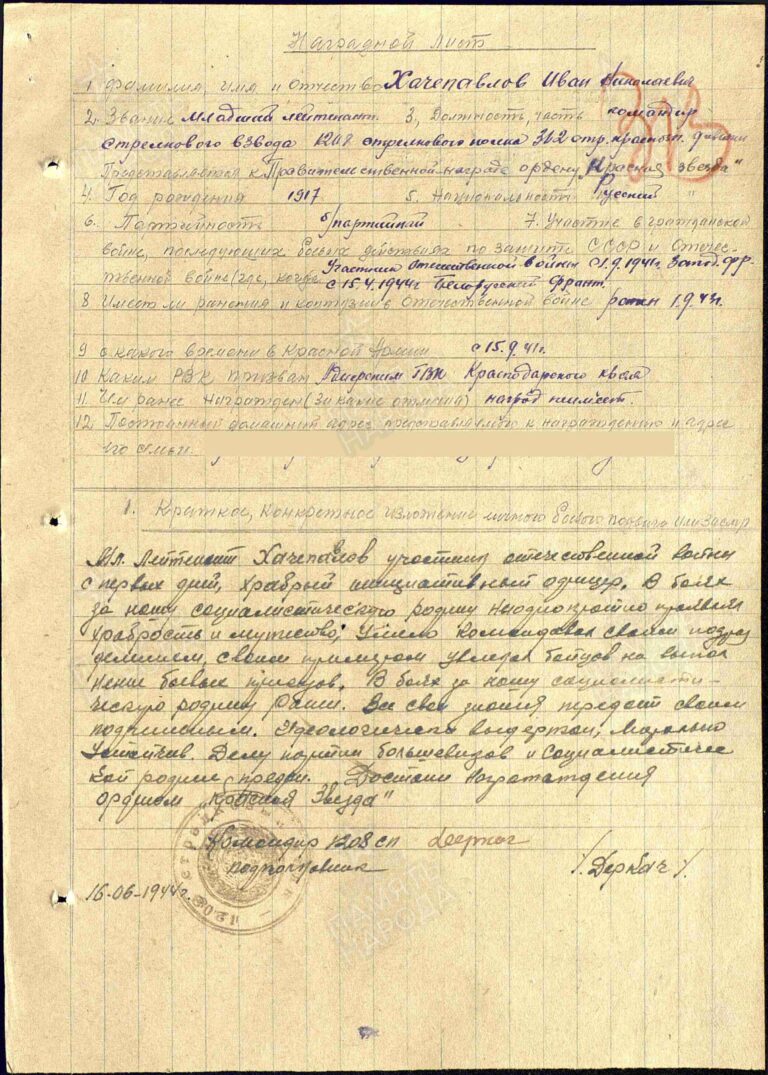 Наградной лист
1. Фамилия, имя и отчество Хачепавлов Иван Николаевич
2. Звание младший лейтенант 3. Должность, часть командир
стрелкового взвода 1208 стрелкового полка 362 стр. краснозн. дивизии
Представляется к Правительственной награде ордену "Красная звезда"
4. Год рождения 1917 5. Национальность Русский
6. Партийность б/партийный 7. Участие в гражданской
войне, последующих боевых действиях по защите СССР и Отечес-
твенной войне (где, когда) Участник отечественной войны с 1.9.1941г. Запад. фр.
с 15.4.1944г Белорусский фронт.
8 Имеет ли ранения и контузии в Отечественной войне ранен 1.9.43г.
9 с какого времени в Красной Армии с 15.9.41г.
10 Каким РВК призван ГВК Краснодарского края
11. Чем ранее награжден (за какие отличия) наград не имеет.
12. Постоянный домашний адрес представляемого к награждению и адрес
его семьи.
1. Краткое, конкретное изложение личного боевого подвига или заслуг
Мл. Лейтенант Хачепавлов участник отечественной войны
с первых дней, храбрый инициативный офицер. В боях
за нашу социалистическую родину неоднократно проявлял
храбрость и мужество, Умело командовал своим подраз
делением, своим примером увлекал бойцов на выпол
нение боевых приказов. В боях за нашу социалисти-
ческую родину ранен. Все свои знания передает своим
подчиненым. Идеологически выдержан, Морально
Устойчив. Делу партии большевиков и Социалистичес
кой родине предан. Достоин Награждения
орденом "Красная Звезда"
Командир 1208 сп Деркач
подполковник /Деркач/.
16-06-1944г.
ПАМЯТЬ
НАРОДА